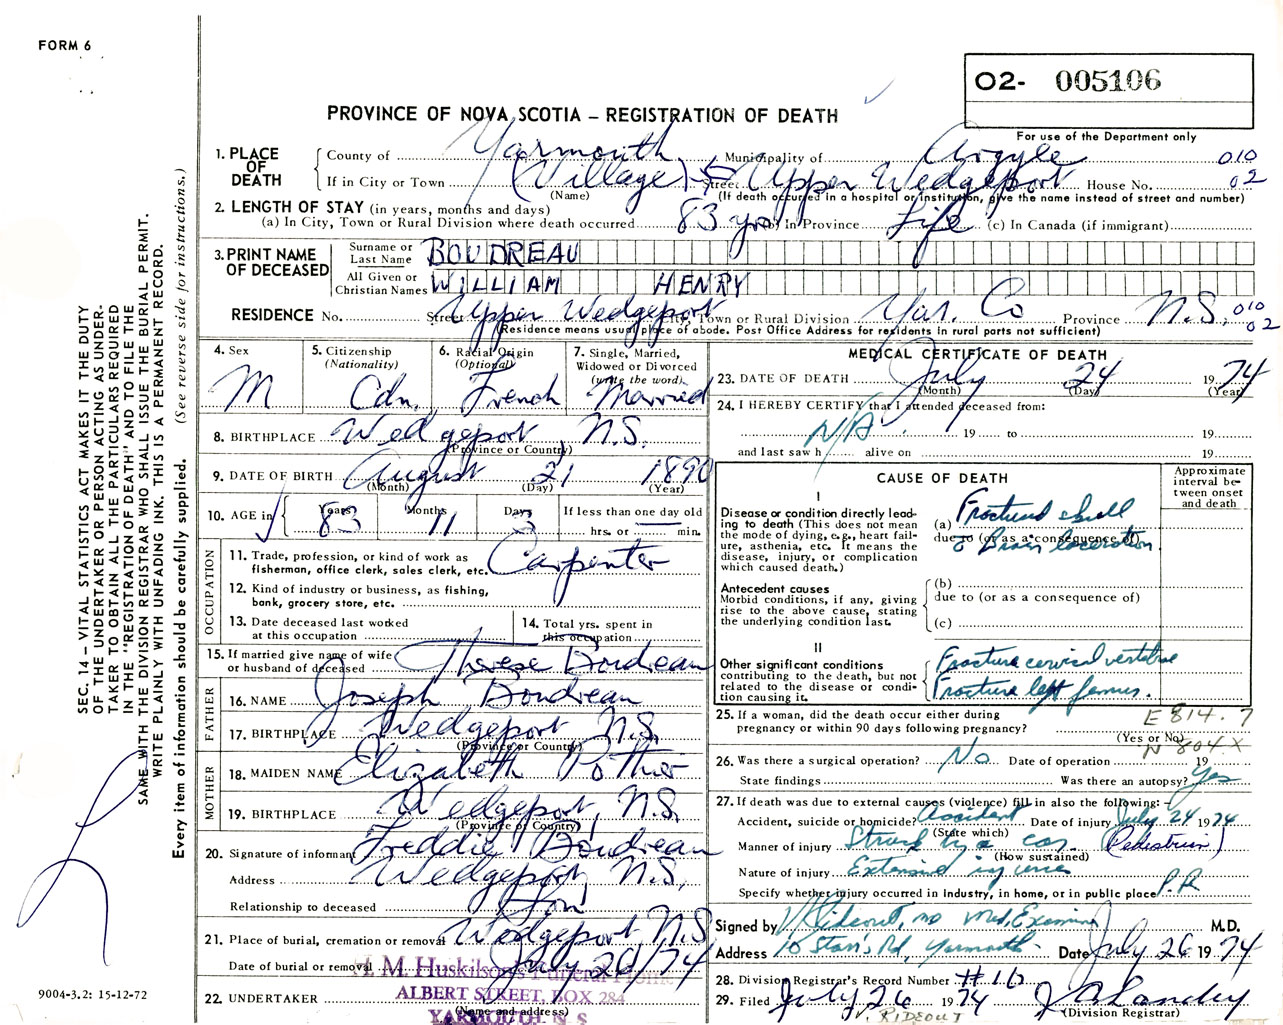 FORM 6
O2- 005106
For use of the Department only
PROVINCE OF NOVA SCOTIA – REGISTRATION OF DEATH
1. PLACE OF DEATH
County of Yarmouth Municipality of Argyle 010
If in City or Town (Village) Street Upper Wedgeport House No. 02
(Name) (If death occurred in a hospital or institution, give the name instead of street and number)
2. LENGTH OF STAY (in years, months and days)
(a) In City, Town or Rural Division where death occurred 83 yrs (b) In Province Life (c) In Canada (if immigrant)
3. PRINT NAME OF DECEASED
Surname or Last Name BOUDREAU
All Given or Christian Names WILLIAM HENRY
RESIDENCE No. Street Upper Wedgeport City, Town or Rural Division Yar. Co Province N.S. 010 02
(Residence means usual place of abode. Post Office Address for residents in rural parts not sufficient)
4. Sex M
5. Citizenship (Nationality) Cdn.
6. Racial Origin (Optional) French
7. Single, Married, Widowed or Divorced (write the word) Married
8. BIRTHPLACE Wedgeport, N.S.
(Province or Country)
9. DATE OF BIRTH August 21 1890
(Month) (Day) (Year)
10. AGE in Years 83 Months 11 Days 3 If less than one day old
hrs. or min.
OCCUPATION
11. Trade, profession, or kind of work as fisherman, office clerk, sales clerk, etc. Carpenter
12. Kind of industry or business, as fishing, bank, grocery store, etc.
13. Date deceased last worked at this occupation
14. Total yrs. spent in this occupation
15. If married give name of wife or husband of deceased Therese Boudreau
FATHER
16. NAME Joseph Boudreau
17. BIRTHPLACE Wedgeport N.S.
(Province or Country)
MOTHER
18. MAIDEN NAME Elizabeth Pothier
19. BIRTHPLACE Wedgeport, N.S.
(Province or Country)
20. Signature of informant Freddie Boudreau
Address Wedgeport, N.S.
Relationship to deceased Son
21. Place of burial, cremation or removal Wedgeport, N.S.
Date of burial or removal July 26/74
22. UNDERTAKER
(Name and address)
M. Huskilson's Funeral Home
ALBERT STREET, BOX 284
YARMOUTH, N. S
MEDICAL CERTIFICATE OF DEATH
23. DATE OF DEATH July 24 1974
(Month) (Day) (Year)
24. I HEREBY CERTIFY that I attended deceased from:
N/A 19 to 19
and last saw h alive on 19
CAUSE OF DEATH
Approximate interval between onset and death
I
Disease or condition directly leading to death (This does not mean the mode of dying, e.g., heart failure, asthenia, etc. It means the disease, injury, or complication which caused death.)
(a) Fractured skull
due to (or as a consequence of)
& Brain laceration
Antecedent causes
Morbid conditions, if any, giving rise to the above cause, stating the underlying condition last.
(b)
due to (or as a consequence of)
(c)
II
Other significant conditions contributing to the death, but not related to the disease or condition causing it.
Fracture cervical vertebrae
Fracture left femur.
25. If a woman, did the death occur either during pregnancy or within 90 days following pregnancy?
(Yes or No)
E 814.7
N 804X
26. Was there a surgical operation? No Date of operation 19
State findings Was there an autopsy? Yes
27. If death was due to external causes (violence) fill in also the following:
Accident, suicide or homicide? Accident Date of injury July 24 1974
(State which)
Manner of injury Struck by a car. (Pedestrian)
(How sustained)
Nature of injury Extensive injuries
Specify whether injury occurred in Industry, in home, or in public place P.R
Signed by Rideout, MD Med. Examiner M.D.
Address 10 Starrs Rd, Yarmouth Date July 26 1974
28. Division Registrar's Record Number #16
29. Filed July 26 1974 Landry
(Division Registrar)
RIDEOUT
SEC. 14 – VITAL STATISTICS ACT MAKES IT THE DUTY
OF THE UNDERTAKER OR PERSON ACTING AS UNDER-
TAKER TO OBTAIN ALL THE PARTICULARS REQUIRED
IN THE "REGISTRATION OF DEATH" AND TO FILE THE
SAME WITH THE DIVISION REGISTRAR WHO SHALL ISSUE THE BURIAL PERMIT.
WRITE PLAINLY WITH UNFADING INK. THIS IS A PERMANENT RECORD.
Every item of information should be carefully supplied. (See reverse side for instructions.)
9004-3.2: 15-12-72